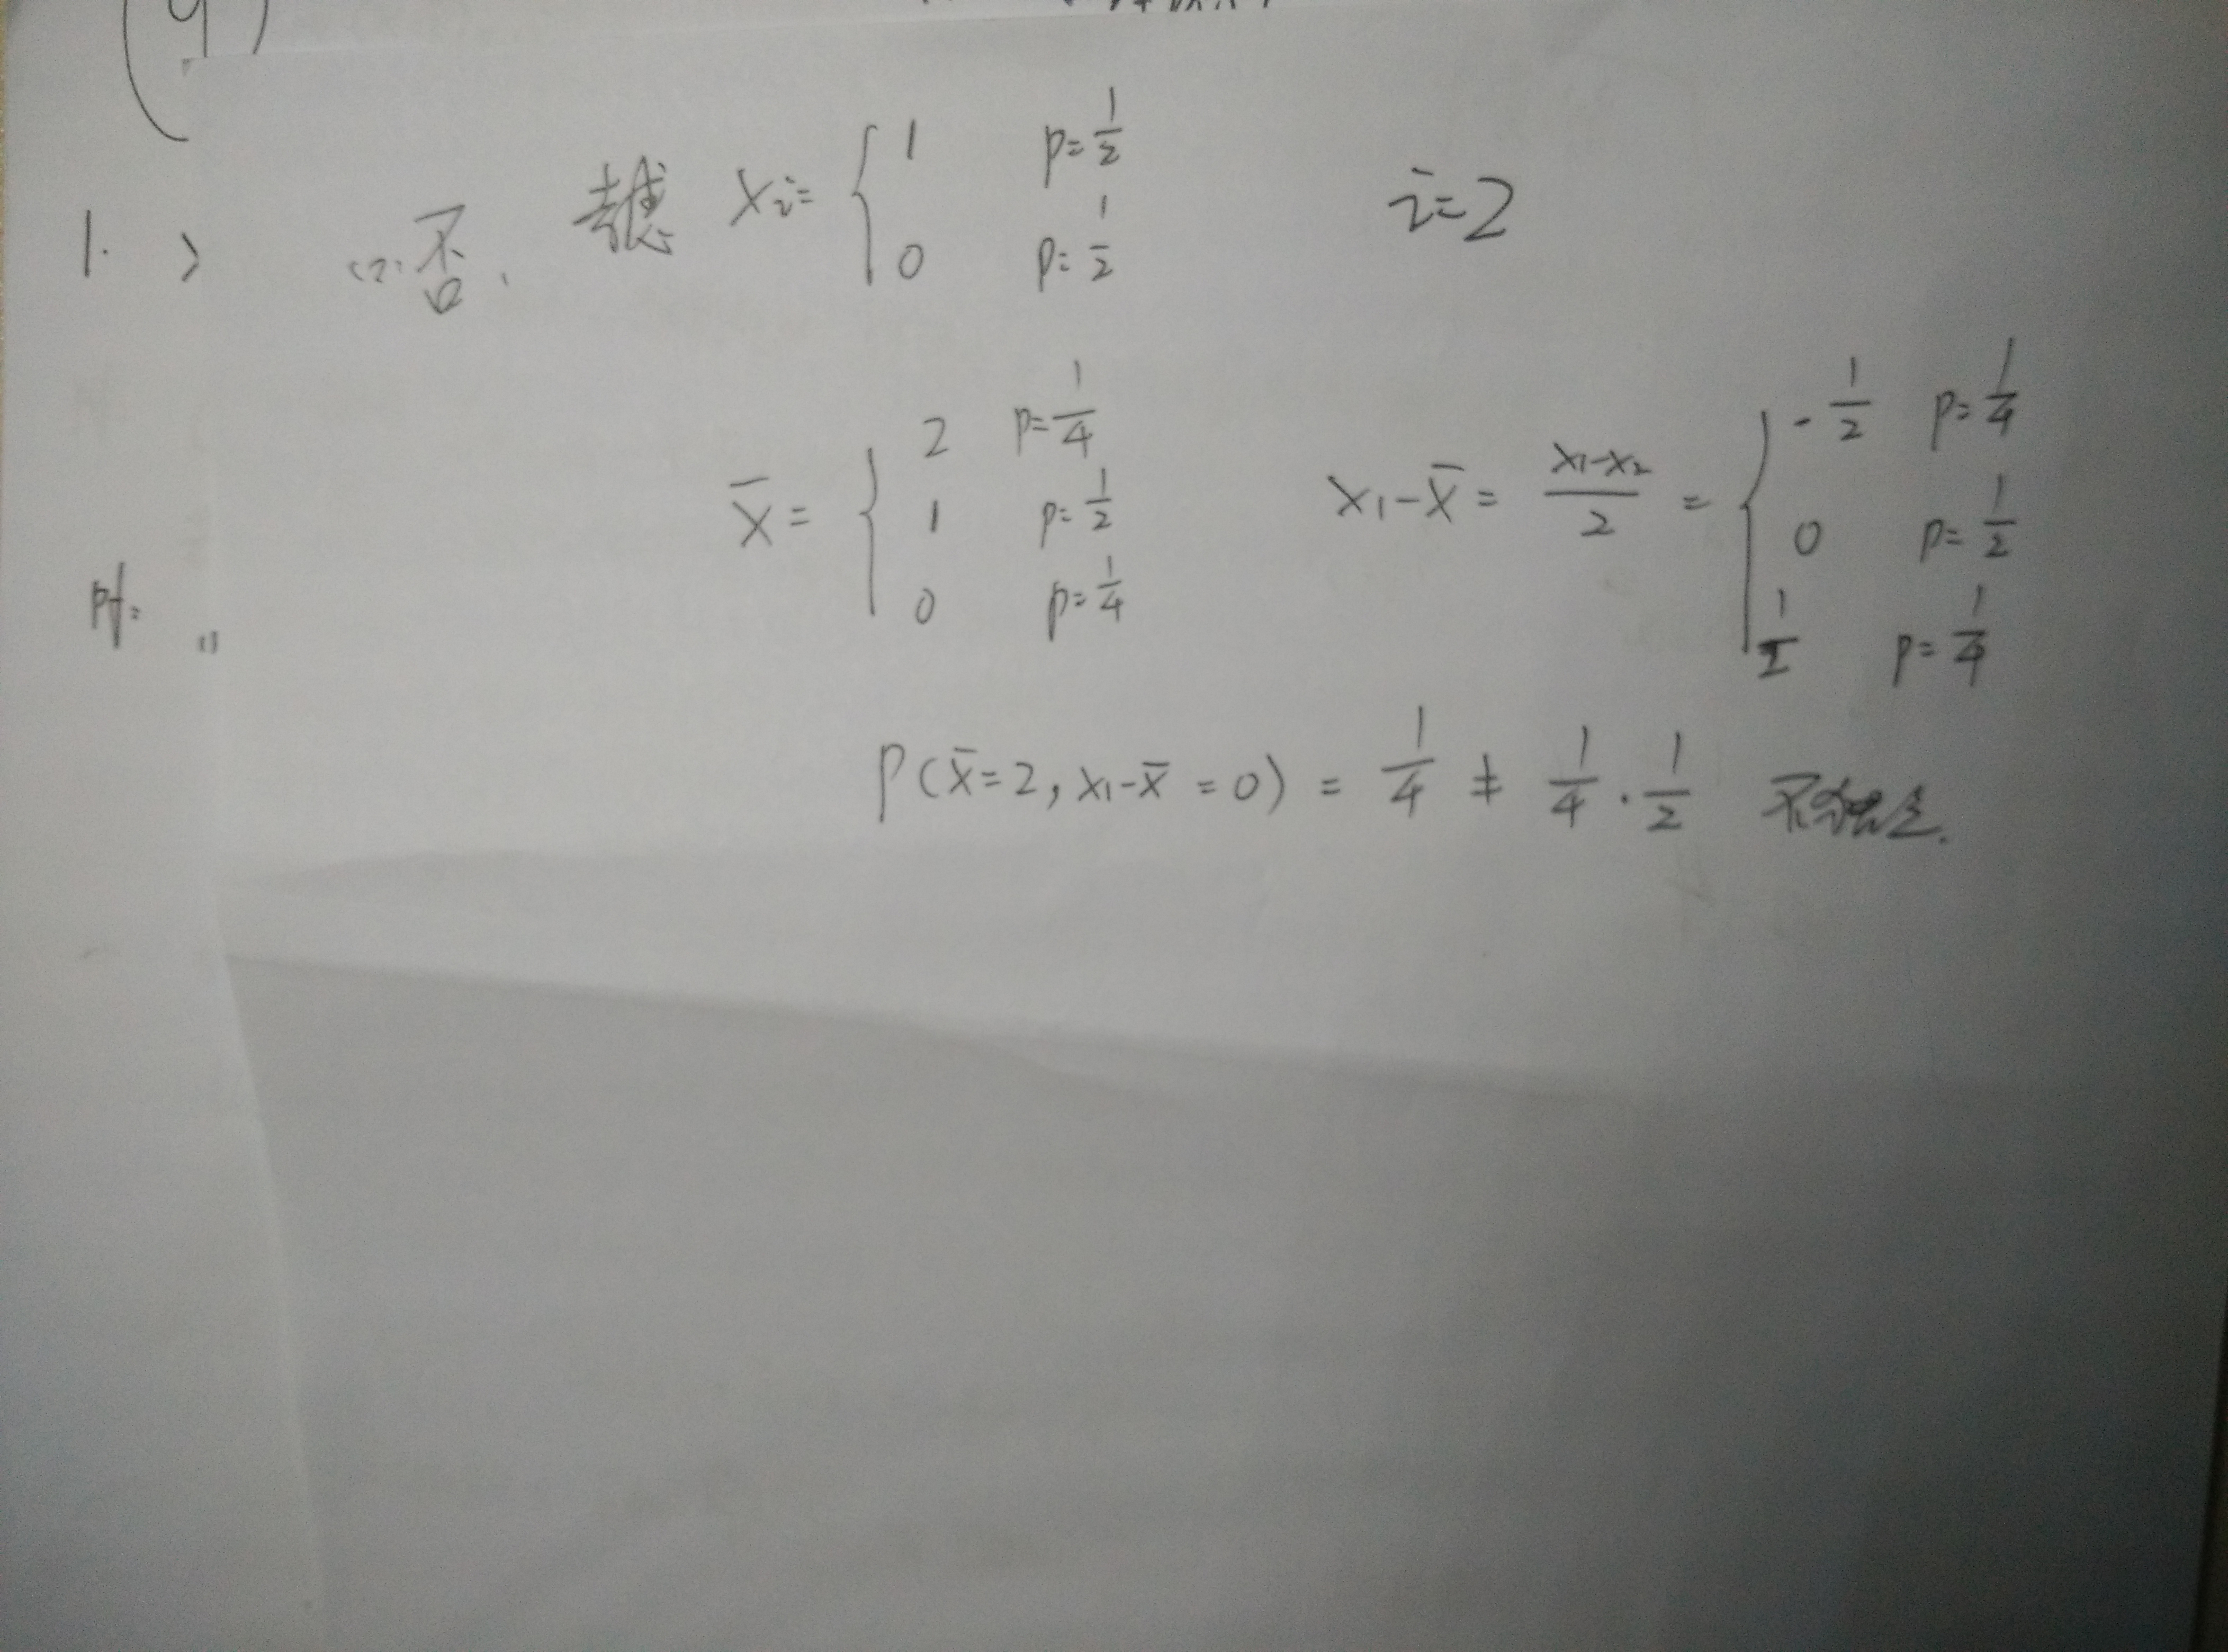 (9)
1. > (2). 否. 考虑 Xi= { 1 p=1/2 i=2
0 p=1/2
X̄ = { 2 p=1/4
1 p=1/2
0 p=1/4
X1-X̄ = (X1-X2)/2 = { -1/2 p=1/4
0 p=1/2
1/2 p=1/4
P(X̄=2, X1-X̄=0) = 1/4 ≠ 1/4 · 1/2 不独立.